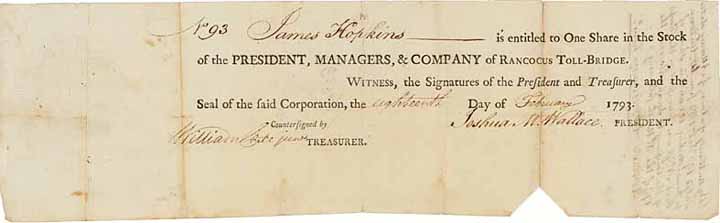 No 93 James Hopkins is entitled to One Share in the Stock
of the PRESIDENT, MANAGERS, & COMPANY of RANCOCUS TOLL-BRIDGE.
WITNESS, the Signatures of the President and Treasurer, and the
Seal of the said Corporation, the eighteenth Day of February 1793.
Countersigned by Joshua M. Wallace. PRESIDENT.
William junr TREASURER.